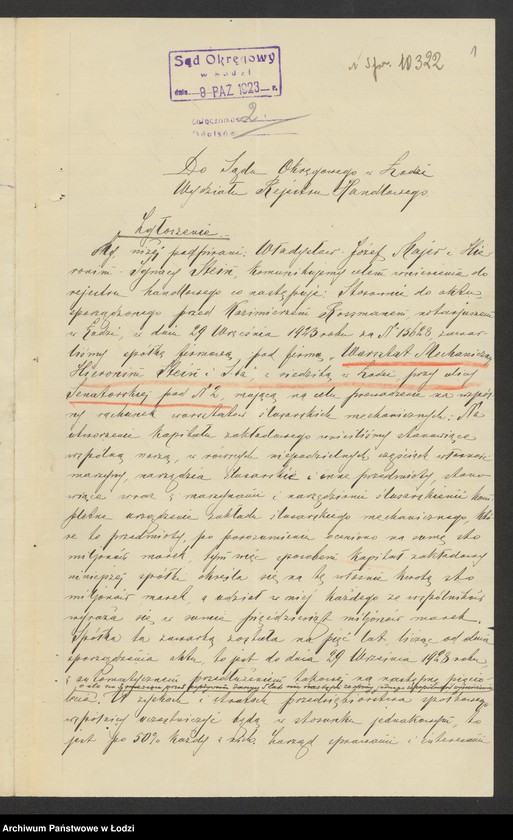 1
Sąd Okręgowy
w Łodzi
dnia 9 PAZ. 1923 r.
N Spr. 10322
załączników 2
Do Sądu Okręgowego w Łodzi
Wydziału Rejestru Handlowego.
Zgłoszenie.
My, niżej podpisani: Władysław Józef Majer i Hie-
ronim Ignacy Stein, komunikujemy celem wniesienia do
rejestru handlowego co następuje: Stosownie do aktu,
sporządzonego przed Kazimierzem Rossmanem, notarjuszem
w Łodzi, w dniu 29 Września 1923 roku za N 13628, zawar-
liśmy spółkę firmową pod firmą „Warsztat Mechaniczny
Hieronim Stein i S-ka", z siedzibą w Łodzi przy ulicy
Senatorskiej pod N 2, mającą na celu prowadzenie na wspól-
ny rachunek warsztatów ślusarskich mechanicznych. Na
utworzenie kapitału zakładowego wnieśliśmy stanowiące
wspólną naszą, w równych niepodzielnych częściach własność
maszyny, narzędzia ślusarskie i inne przedmioty, stano-
wiące wraz z maszynami i narzędziami ślusarskiemi kom-
pletne urządzenie zakładu ślusarskiego mechanicznego, któ-
re to przedmioty, po porozumieniu oceniono na sumę sto
miljonów marek, tym więc sposobem kapitał zakładowy
niniejszej spółki określa się na tę właśnie kwotę sto
miljonów marek, a udział w niej każdego ze wspólników
wyraża się w sumie pięćdziesiąt miljonów marek.
Spółka ta zawartą została na pięć lat, licząc od dnia
sporządzenia aktu, to jest do dnia 29 Września 1923 roku,
z automatycznem przedłużeniem takowej na następne pięcio-
lecia. W zyskach i stratach przedsiębiorstwa spółkowego
wspólnicy uczestniczyć będą w stosunku jednakowym, to
jest po 50% każdy z nich. Zarząd sprawami i interesami
Archiwum Państwowe w Łodzi